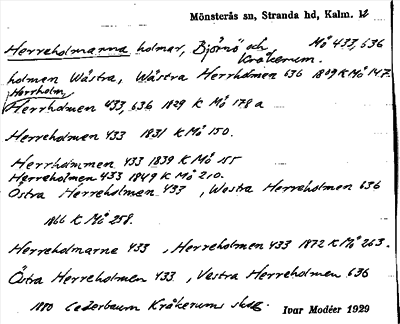 Mönsterås sn, Stranda hd, Kalm. l.
Herreholmarna holmar, Björnö och Mö 433, 636
Kråkerum.
holmen Wästra, Wästra Herrhólmen 636 1809 K Mö 147.
Herrholm,
Herrholmen 433, 636 1829 K Mö 178 a
Herreholmen 433 1831 K Mö 150.
Herrholmmen 433 1839 K Mö 155
Herreholmen 433 1849 K Mö 210.
Östra Herreholmen 433, Westra Herreholmen 636
1866 K Mö 258.
Herreholmarne 433, Herreholmen 433 1872 K Mö 263.
Östra Herreholmen 433, Vestra Herreholmen 636
1880 Cederbaum Kråkerums skog.
Ivar Modéer 1929